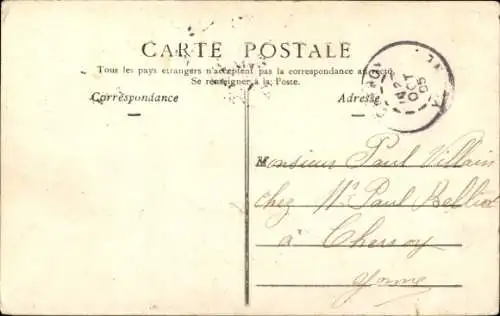 CARTE POSTALE
Tous les pays étrangers n'acceptent pas la correspondance au recto
Se renseigner à la Poste.
Correspondance
Adresse
OCT
05
Monsieur Paul Villain
chez Mr Paul Belliot
à Cheroy
Yonne